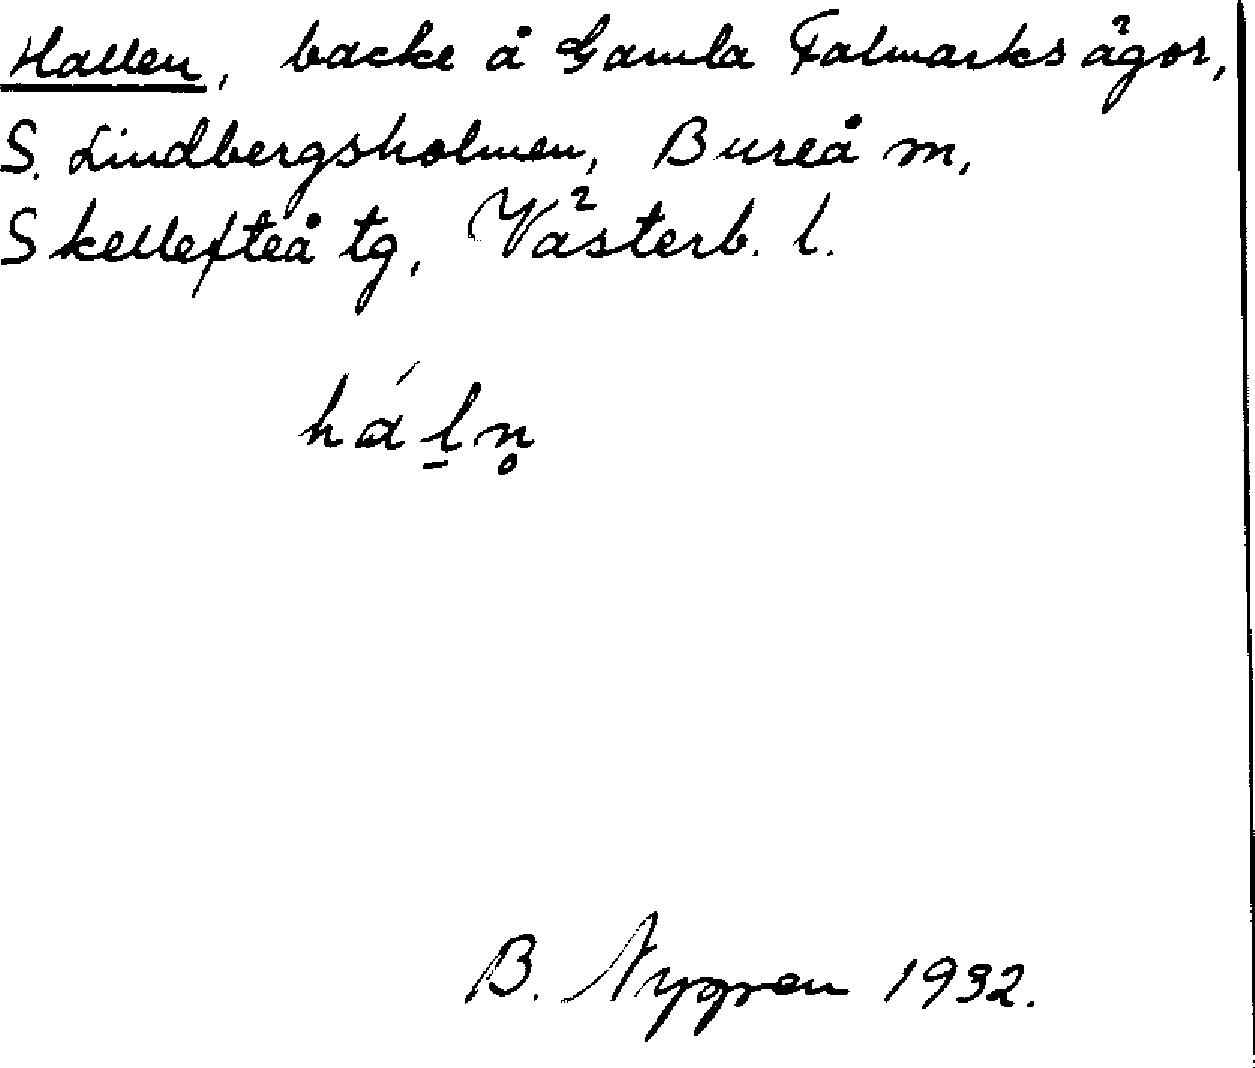 Hallen, backe å Gamla Falmarks ägor,
S. Lindbergsholmen, Bureå m,
Skellefteå tg, Västerb. l.
hál̠n̥
B. Nygren 1932.